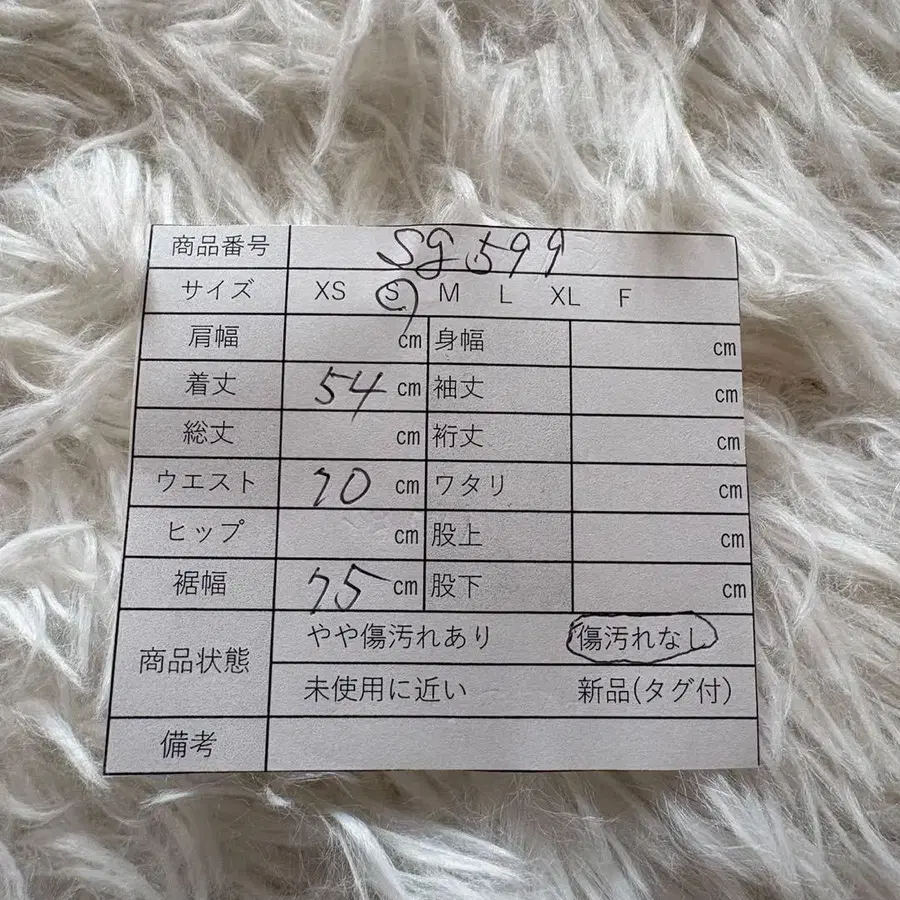 商品番号 SG599
サイズ XS S M L XL F
肩幅 cm 身幅 cm
着丈 54 cm 袖丈 cm
総丈 cm 裄丈 cm
ウエスト 70 cm ワタリ cm
ヒップ cm 股上 cm
裾幅 75 cm 股下 cm
商品状態 やや傷汚れあり 傷汚れなし
未使用に近い 新品(タグ付)
備考